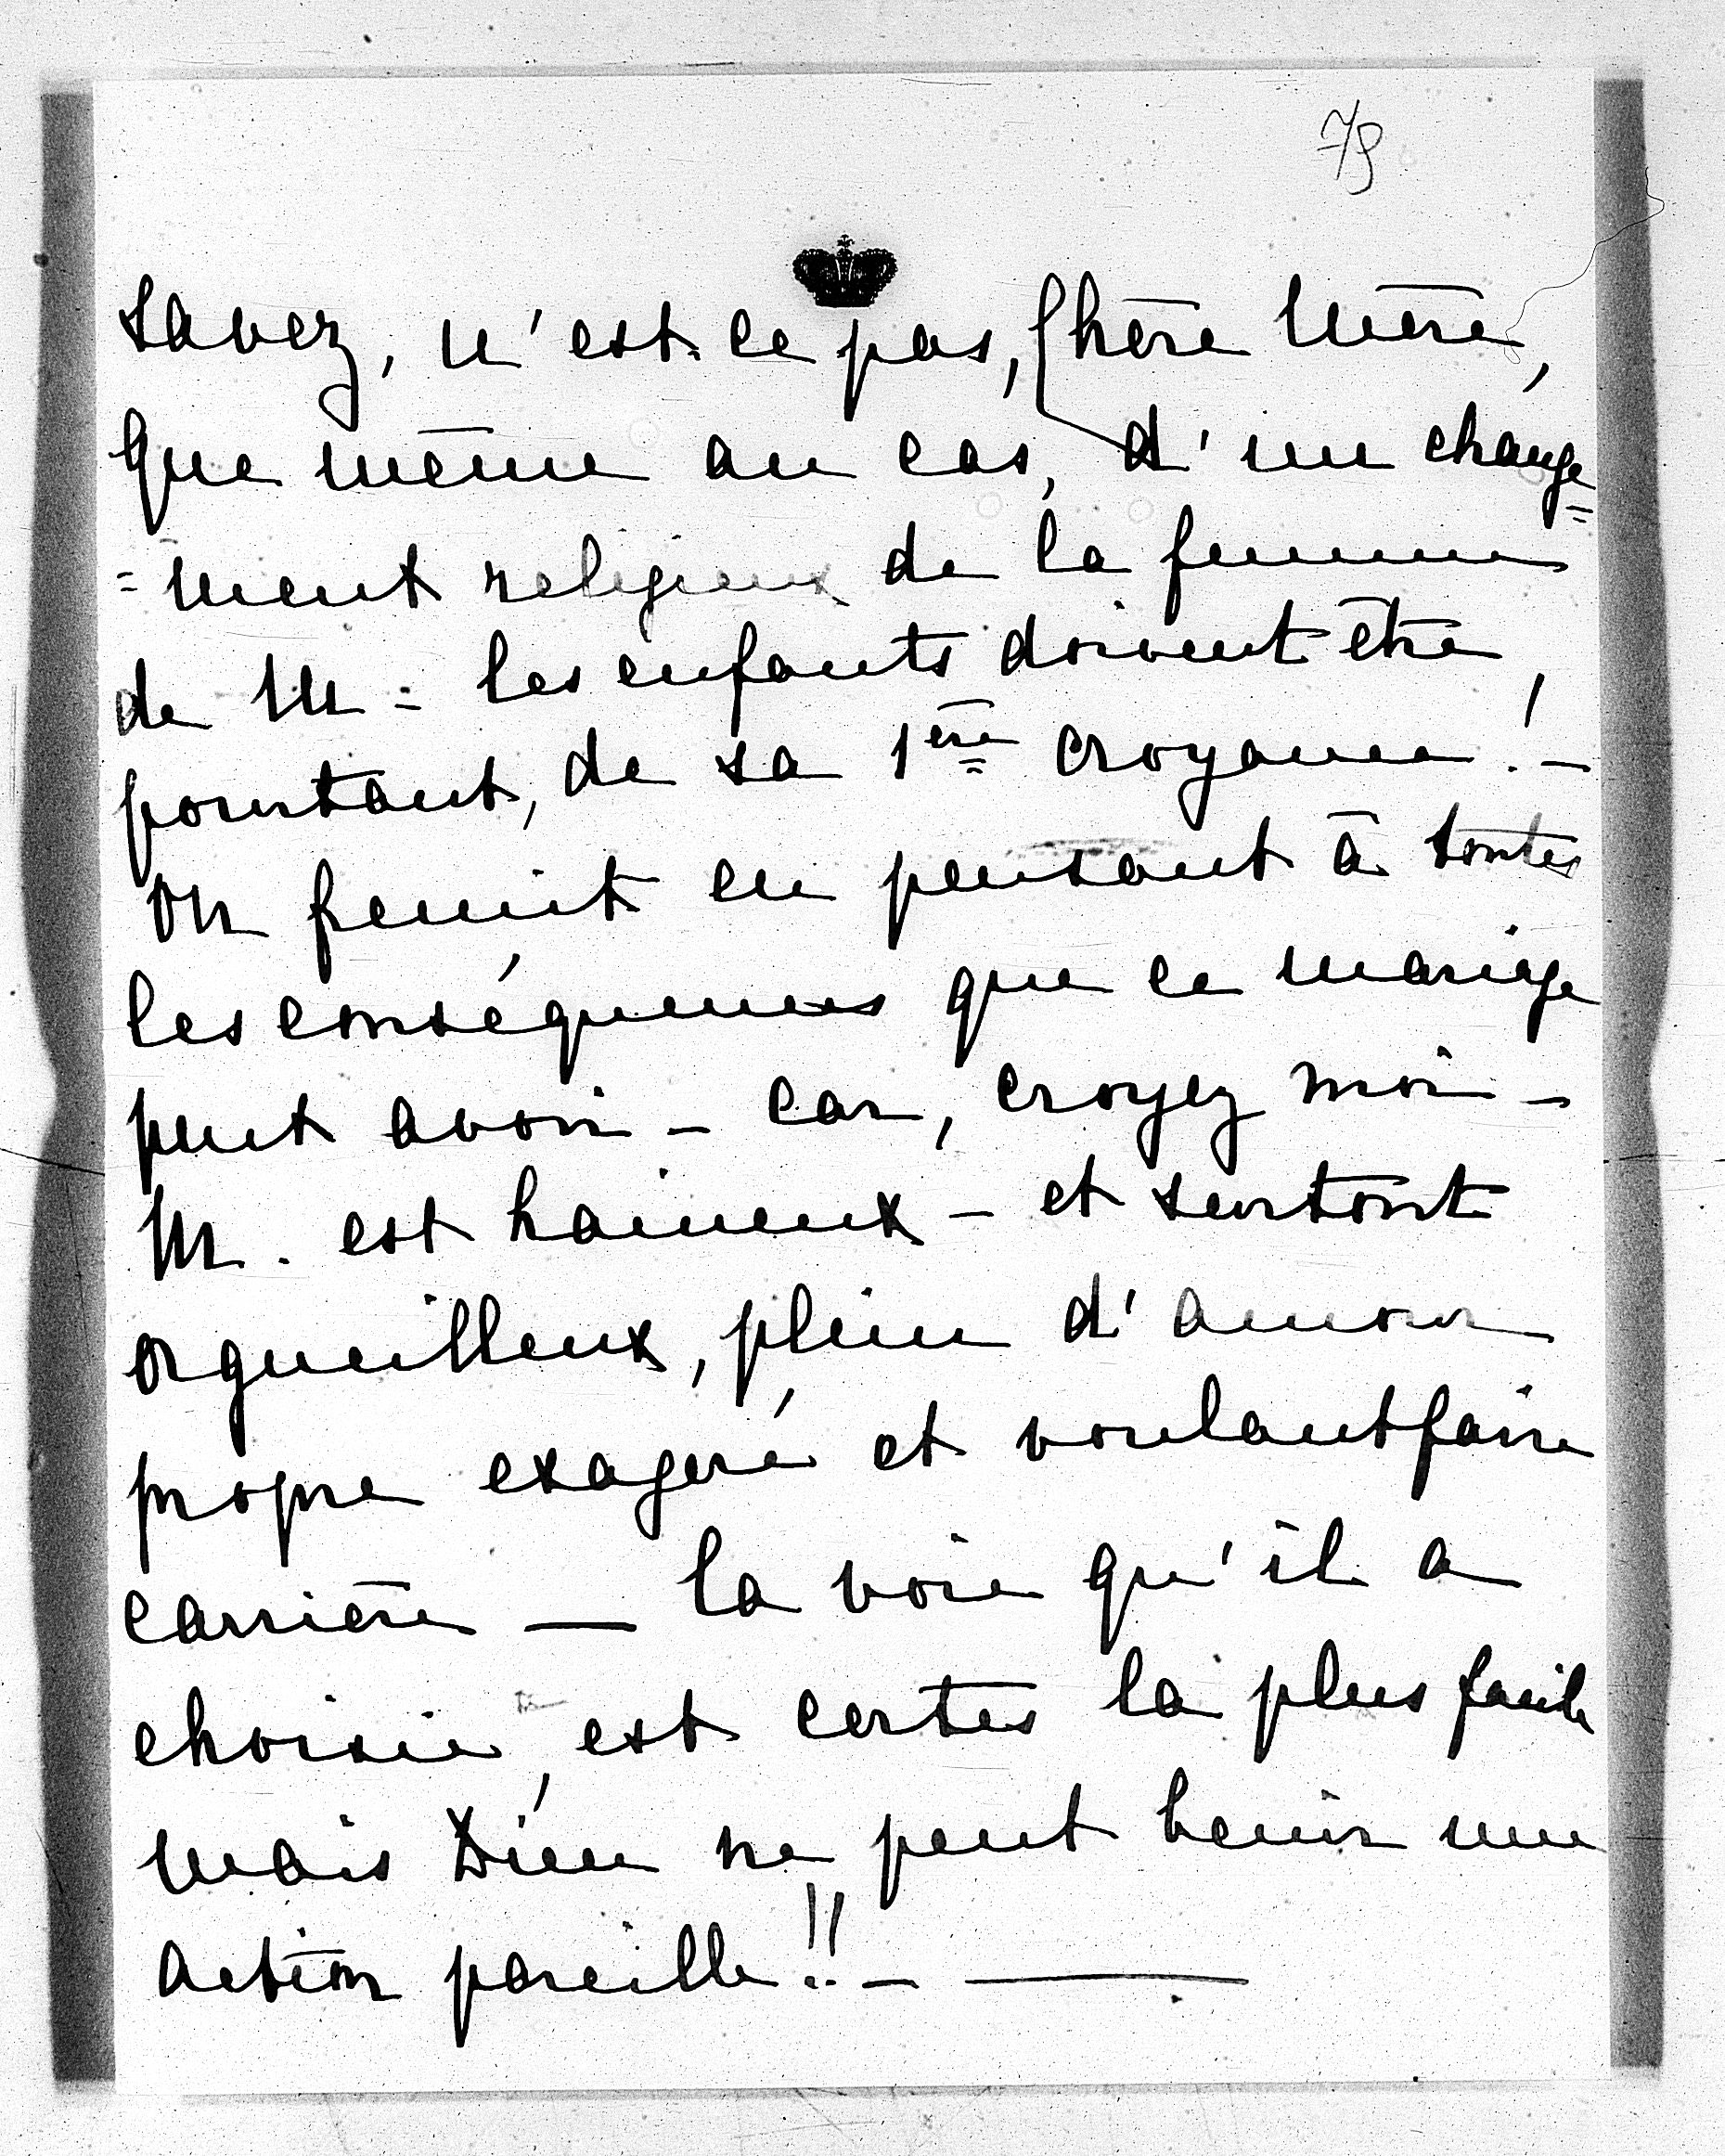 79
savez, n'est-ce pas, Chère Mère,
que même au cas, d'un change=
=ment religieux de la femme
de M= les enfants doivent être
pourtant, de sa 1ère croyance! –
On frémit en pensant à toutes
les conséquences que ce mariage
peut avoir – car, croyez moi –
M. est haineux – et surtout
orgueilleux, plein d'amour
propre exagéré et voulant faire
carrière — la voie qu'il a
choisie, est certes la plus facile
mais Dieu ne peut benir une
action pareille!! – —